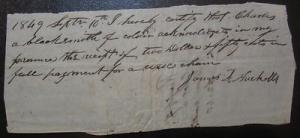 1849 Septr 10th I hereby certify that Charles
a blacksmith of color acknowledged in my
presence the receipt of two dollars & fifty cents in
full payment for a chain
James A. Nicholls